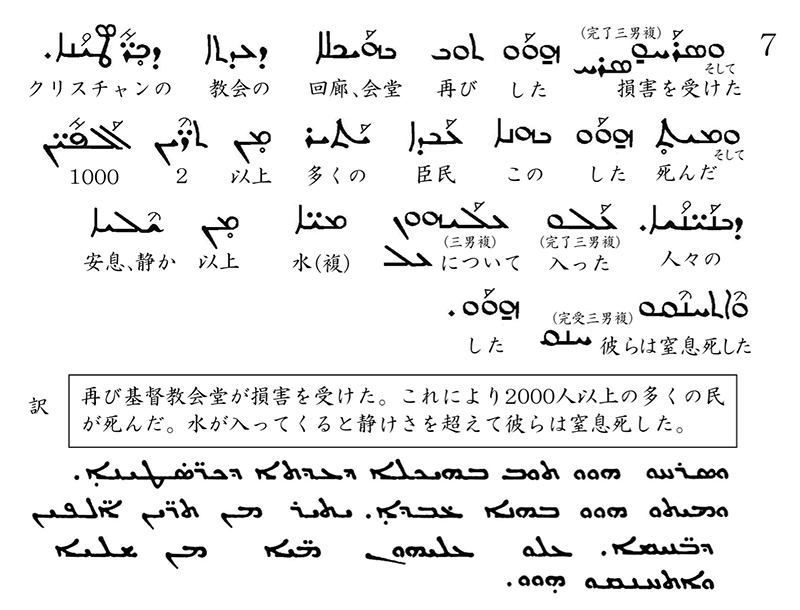 7
ܘܣܪܚܘ ܗܘܘ ܬܘܒ ܒܗܝܟܠܐ ܕܥܕܬܐ ܕܟܪ̈ܣܛܝܢܐ.
(完了三男複) ܣܪܚ そして
損害を受けた した 再び 回廊、会堂 教会の クリスチャンの
ܘܡܝܬܘ ܗܘܘ ܒܗܢܐ ܥܒܕܐ ܝܬܝܪ ܡܢ ܬܪ̈ܝܢ ܐܠܦ̈ܝܢ
そして
死んだ した この 臣民 多くの 以上 2 1000
ܕܒܢ̈ܝܢܫܐ. ܥܠܘ ܥܠܝܗܘܢ ܡ̈ܝܐ ܡܢ ܫܠܝܐ
(完了三男複) (三男複)
人々の 入った について ܥܠ 水(複) 以上 安息、静か
ܘܐܬܚܢܩܘ ܗܘܘ.
(完受三男複) ܚܢܩ
彼らは窒息死した した
訳
再び基督教会堂が損害を受けた。これにより2000人以上の多くの民
が死んだ。水が入ってくると静けさを超えて彼らは窒息死した。
ܘܣܪܚܘ ܗܘܘ ܬܘܒ ܒܗܝܟܠܐ ܕܥܕܬܐ ܕܟܪ̈ܣܛܝܢܐ.
ܘܡܝܬܘ ܗܘܘ ܒܗܢܐ ܥܒܕܐ. ܝܬܝܪ ܡܢ ܬܪ̈ܝܢ ܐܠܦ̈ܝܢ
ܕܒܢ̈ܝܢܫܐ. ܥܠܘ ܥܠܝܗܘܢ ܡ̈ܝܐ ܡܢ ܫܠܝܐ
ܘܐܬܚܢܩܘ ܗܘܘ.